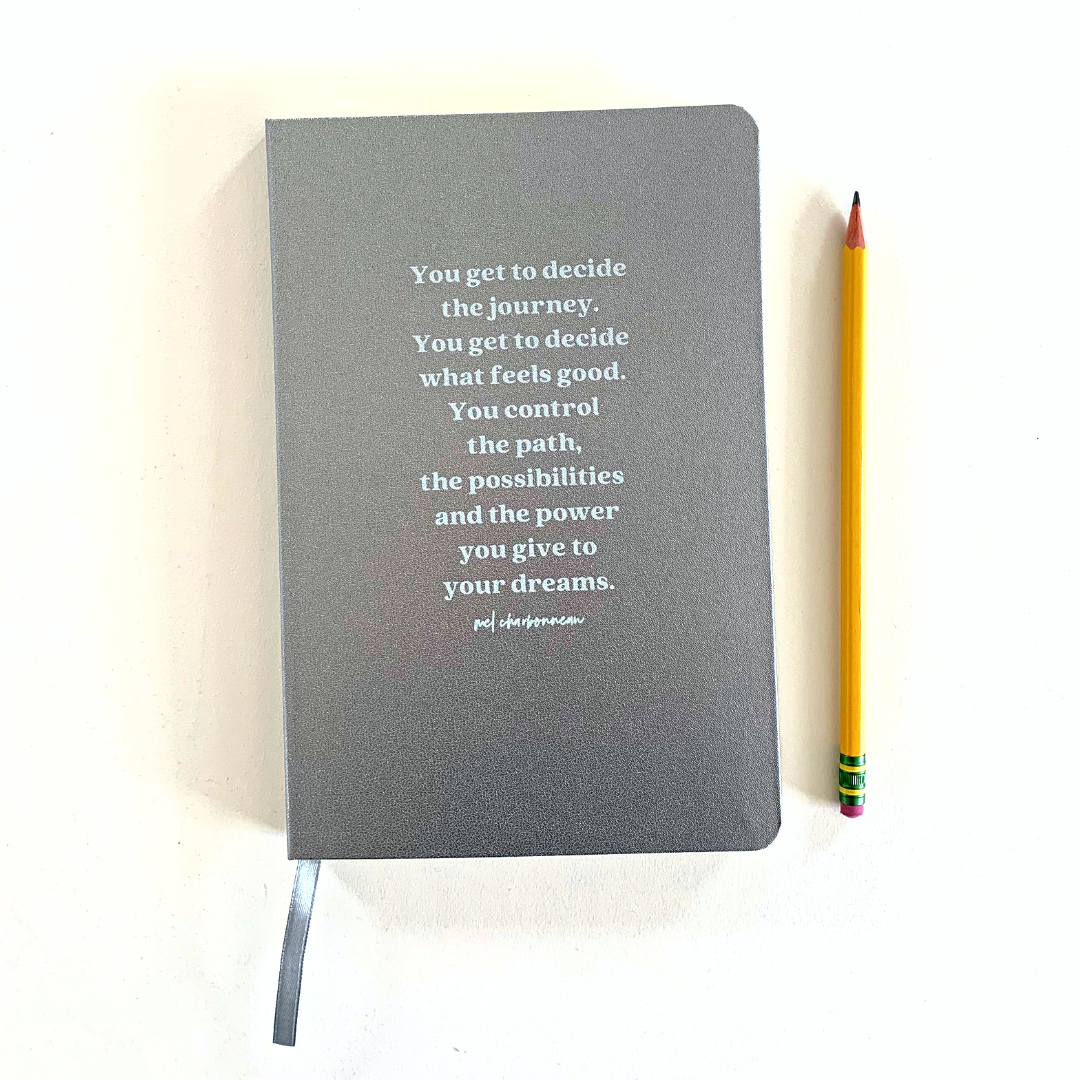 You get to decide
the journey.
You get to decide
what feels good.
You control
the path,
the possibilities
and the power
you give to
your dreams.
mel charbonneau